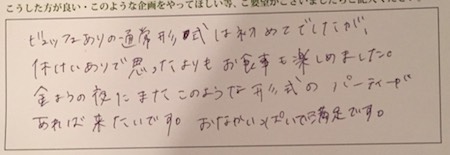 こうした方が良い・このような企画をやってほしい等、ご要望がございましたらご記入ください。
ビュッフェありの通常形式は初めてでしたが、
休けいありで思ったよりもお食事も楽しめました。
金ようの夜にまたこのような形式のパーティーが
あれば来たいです。おなかいっぱいで満足です。